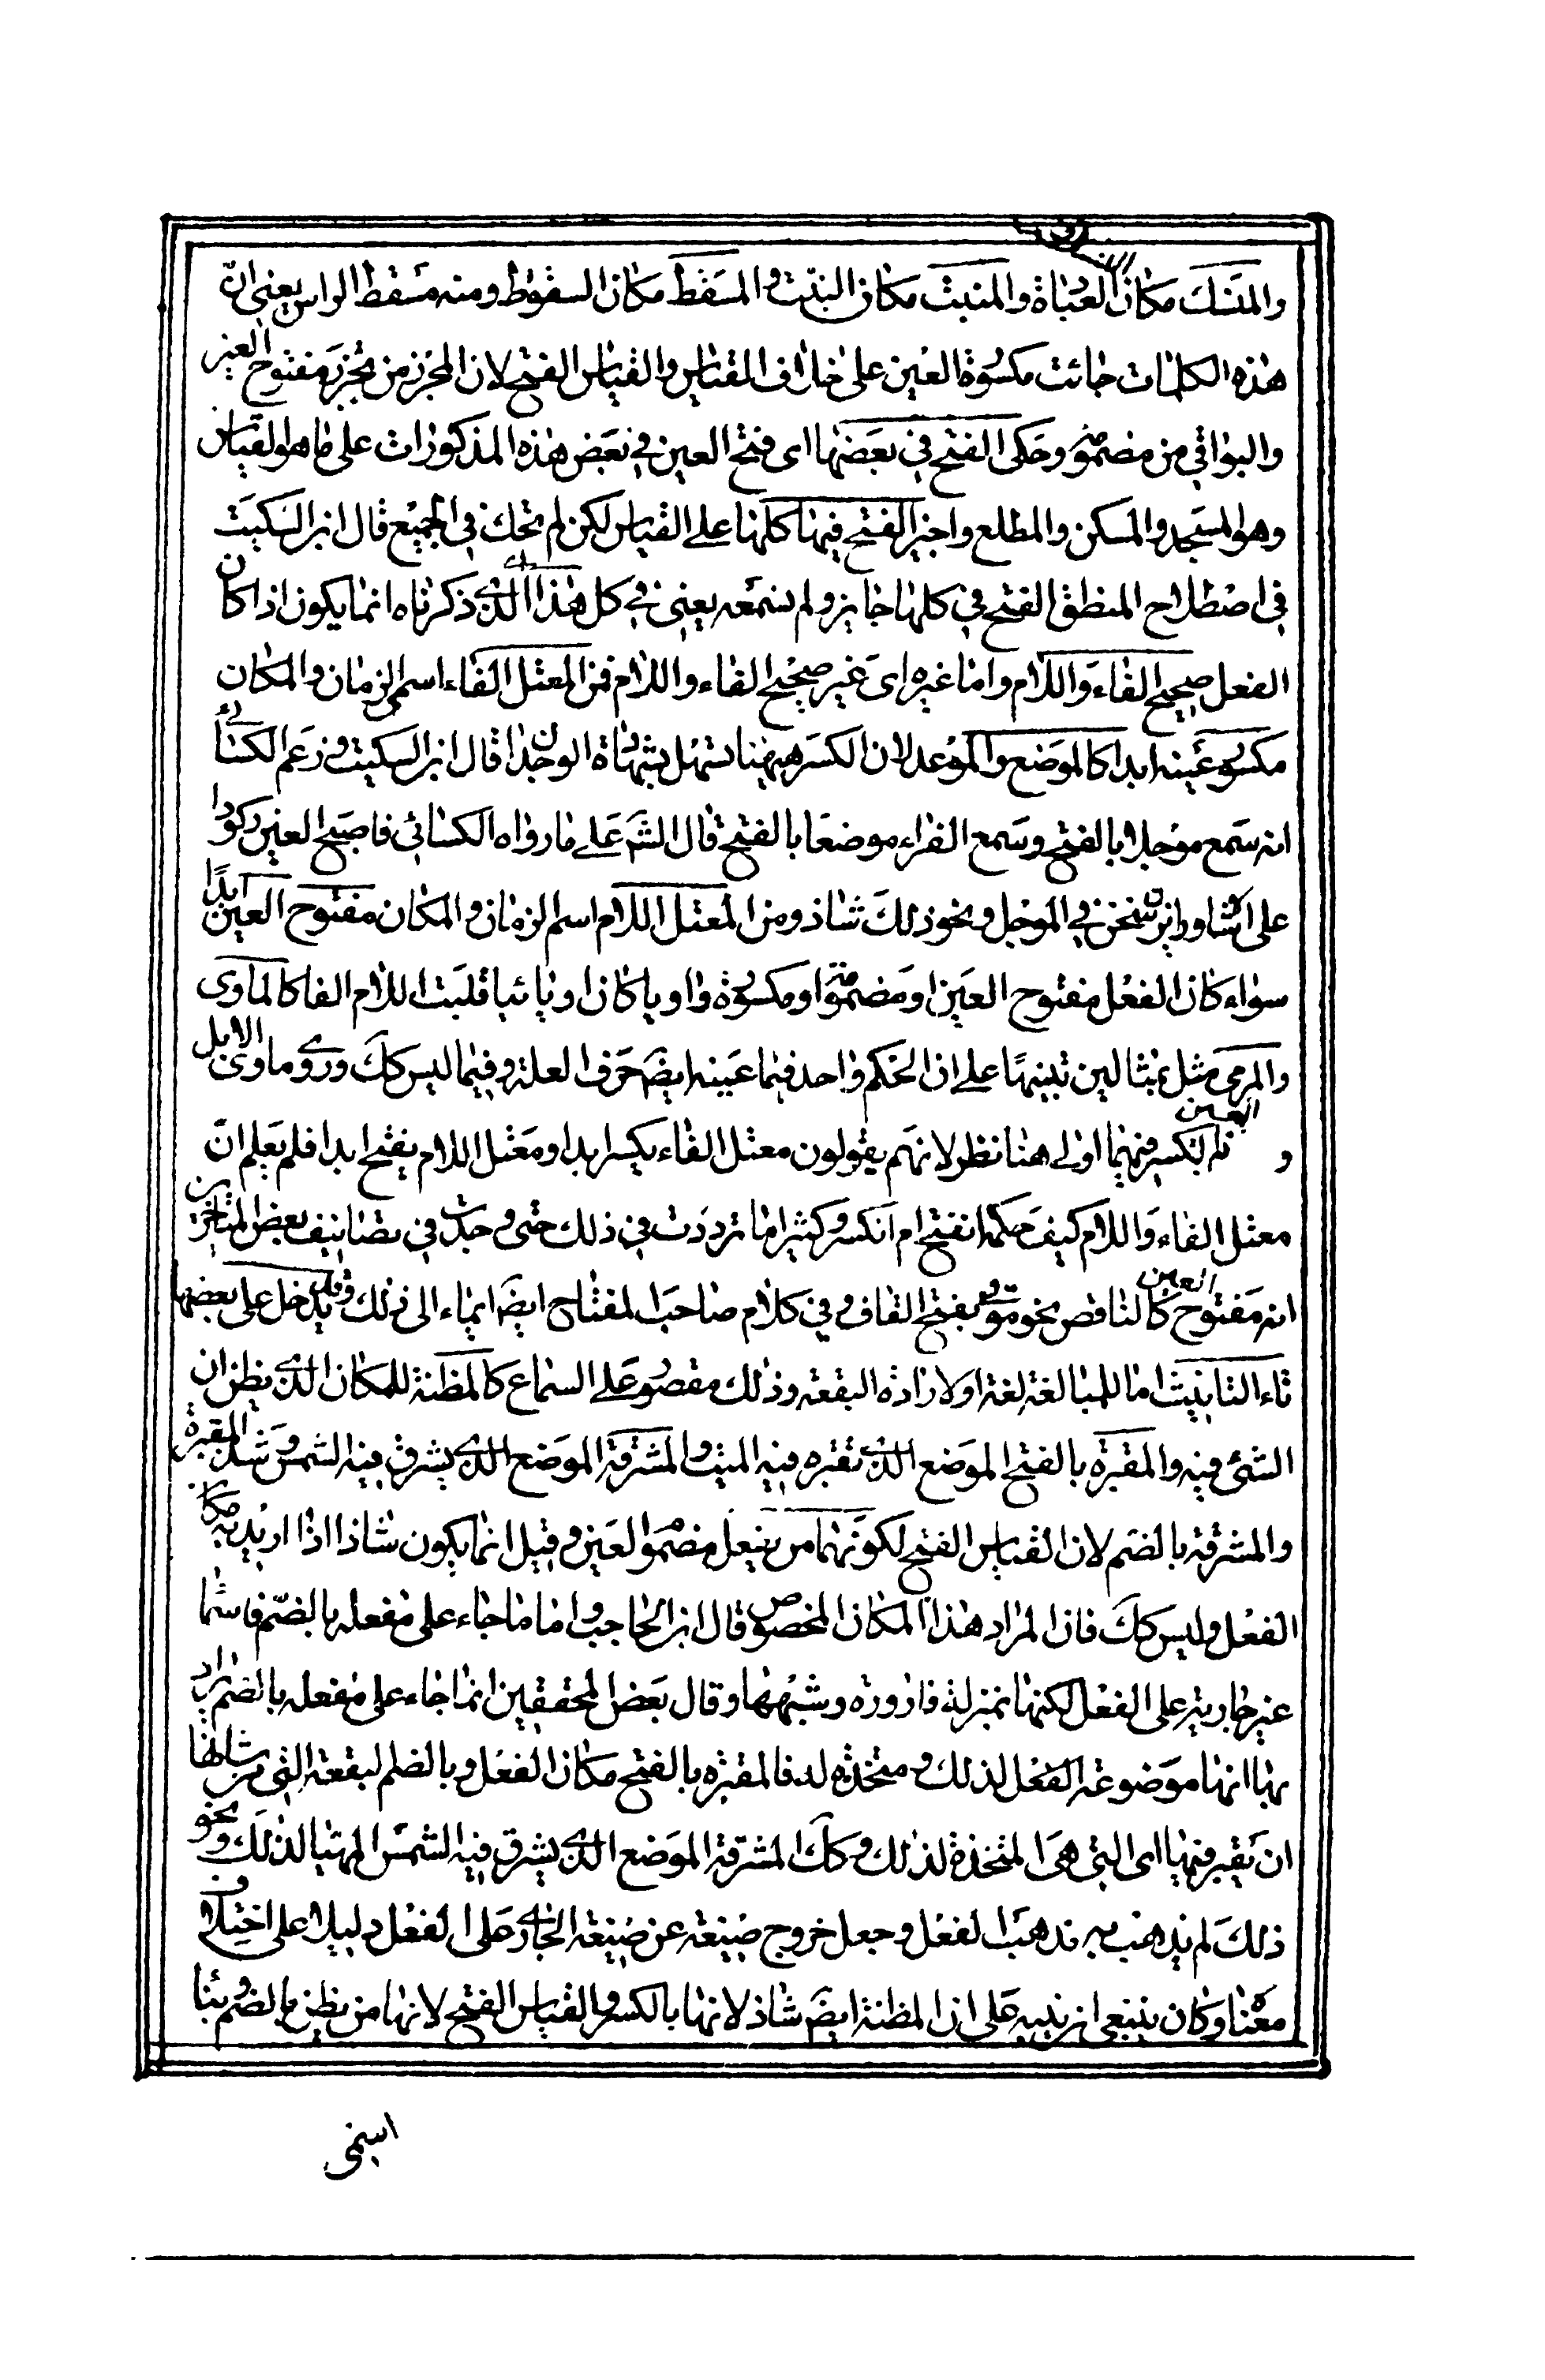 والمنسك مكان العبادة والمنبت مكان النبت والمسقط مكان السقوط ومنه مسقط الراس يعنى انّ
هذه الكلمات جائت مكسورة العين على خلاف القياس والقياس الفتح لان المجزر من يجزر مفتوح العين
والبواقى من مضمومه وحكى الفتح فى بعضها اى فتح العين فى بعض هذه المذكورات على ما هو القياس
وهو المسجد والمسكن والمطلع واجيز الفتح فيها كلها على القياس لكن لم تحك فى الجميع قال ابن السكيت
فى اصطلاح المنطق الفتح فى كلها جايز ولم نسمعه يعنى فى كل هذا الذى ذكرناه انما يكون اذا كان
الفعل صحيح الفاء واللام واما غيره اى غير صحيح الفاء واللام فمن المعتل الفاء اسم الزمان والمكان
مكسور عينه ابدا كالموضع والموعد لان الكسر هيهنا يسهل بشهادة الوجدان قال ابن السكيت وزعم الكسائى
انه سمع موجلا بالفتح وسمع الفراء موضعا بالفتح قال الشم على ما رواه الكسائى فاصبح العين ركودا
على اوشاز ان يرسخن فى الموجل ونحو ذلك شاذ ومن المعتل اللام اسم الزمان والمكان مفتوح العين ابدًا
سواء كان الفعل مفتوح العين او مضمومة او مكسورة واويا كان او يائيا قلبت اللام الفا كالماوى
والمرمى مثل بمثالين تنبيهًا على ان الحكم واحد فيما عينه ايضم حرف العلة وفيما ليس كك وروى ماوى الابل
و بكسر العين فيهما اولى هنا نظر لانهم يقولون معتل الفاء يكسر ابدا ومعتل اللام يفتح ابدا فلم يعلم انّ
معتل الفاء واللام كيف حكمها انفتح ام انكسر وكثيرا ما ترددت فى ذلك حتى وجدت فى تصانيف بعض المتاخرين
انه مفتوح العين كالناقص نحو موقى بفتح القاف وفى كلام صاحب المفتاح ايضم ايماء الى ذلك وقد يدخل على بعضها
تاء التانيث اما للمبالغة لغة او لارادة البقعة وذلك مقصور على السماع كالمظنة للمكان الذى يظن ان
الشئ فيه والمقبرة بالفتح الموضع الذى تقبره فيه الميت والمشرقة الموضع الذى يشرق فيه الشمس وشذ المقبرة
والمشرقة بالضم لان القياس الفتح لكونهما من يفعل مضموم العين وقيل انما يكون شاذا اذا اريد به مكان
الفعل وليس كك فان المراد هذا المكان المخصوص قال ابن الحاجب واما ما جاء على مفعله بالضّم فاسما
غير جارية على الفعل لكنها بمنزلة قارورة وشبهها وقال بعض المحققين انما جاء على مفعله بالضم يراد
بها انها موضوعة الفعل لذلك ومتخذه له فالمقبره بالفتح مكان الفعل وبالضم البقعة التى من شانها
ان تقبر فيها اى التى هى المتخذة لذلك وكك المشرقة الموضع الذى يشرق فيه الشمس المهيا لذلك ونحو
ذلك لم يذهب به مذهب الفعل وجعل خروج صيغته عن صيغة الجارى على الفعل دليلا على اختلاف
معناه وكان ينبغى ان ينبه على ان المظنة ايضم شاذ لانها بالكسر والقياس الفتح لانها من يظن بالضم وبنا
اسمى